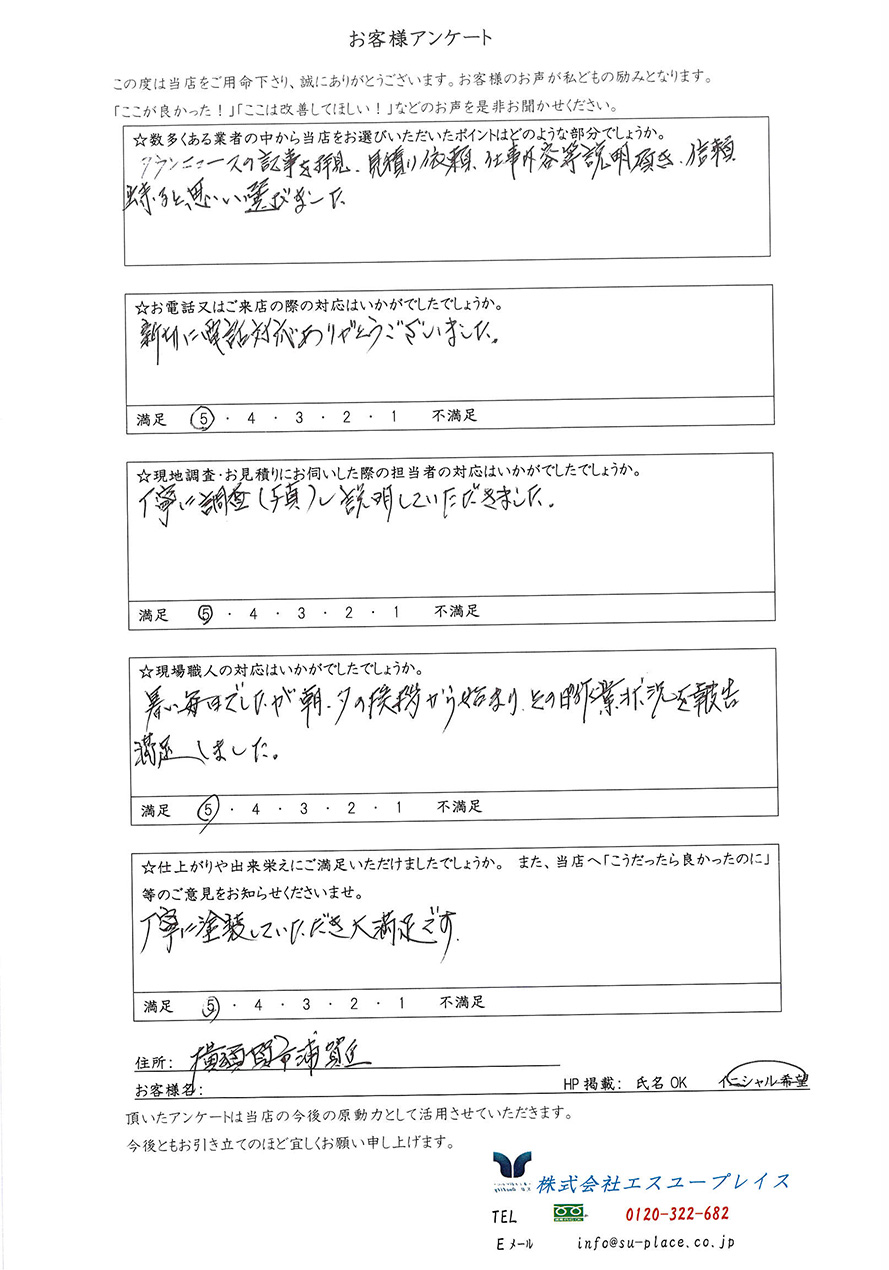 お客様アンケート
この度は当店をご用命下さり、誠にありがとうございます。お客様のお声が私どもの励みとなります。
「ここが良かった！」「ここは改善してほしい！」などのお声を是非お聞かせください。
☆数多くある業者の中から当店をお選びいただいたポイントはどのような部分でしょうか。
タウンニュースの記事を拝見、見積り依頼、仕事内容等説明頂き、信頼
出来ると思い選びました
☆お電話又はご来店の際の対応はいかがでしたでしょうか。
親切に電話対応ありがとうございました。
満足 5 ・ 4 ・ 3 ・ 2 ・ 1 不満足
☆現地調査・お見積りにお伺いした際の担当者の対応はいかがでしたでしょうか。
丁寧に調査(写真)し説明していただきました。
満足 5 ・ 4 ・ 3 ・ 2 ・ 1 不満足
☆現場職人の対応はいかがでしたでしょうか。
暑い毎日でしたが朝、夕の挨拶から始まり、その日の作業状況を報告
満足しました。
満足 5 ・ 4 ・ 3 ・ 2 ・ 1 不満足
☆仕上がりや出来栄えにご満足いただけましたでしょうか。 また、当店へ「こうだったら良かったのに」
等のご意見をお知らせくださいませ。
丁寧に塗装していただき大満足です.
満足 5 ・ 4 ・ 3 ・ 2 ・ 1 不満足
住所: 横須賀市浦賀丘
お客様名: HP掲載: 氏名OK イニシャル希望
頂いたアンケートは当店の今後の原動力として活用させていただきます。
今後ともお引き立てのほど宜しくお願い申し上げます。
株式会社エスユープレイス
TEL 0120-322-682
Eメール info@su-place.co.jp